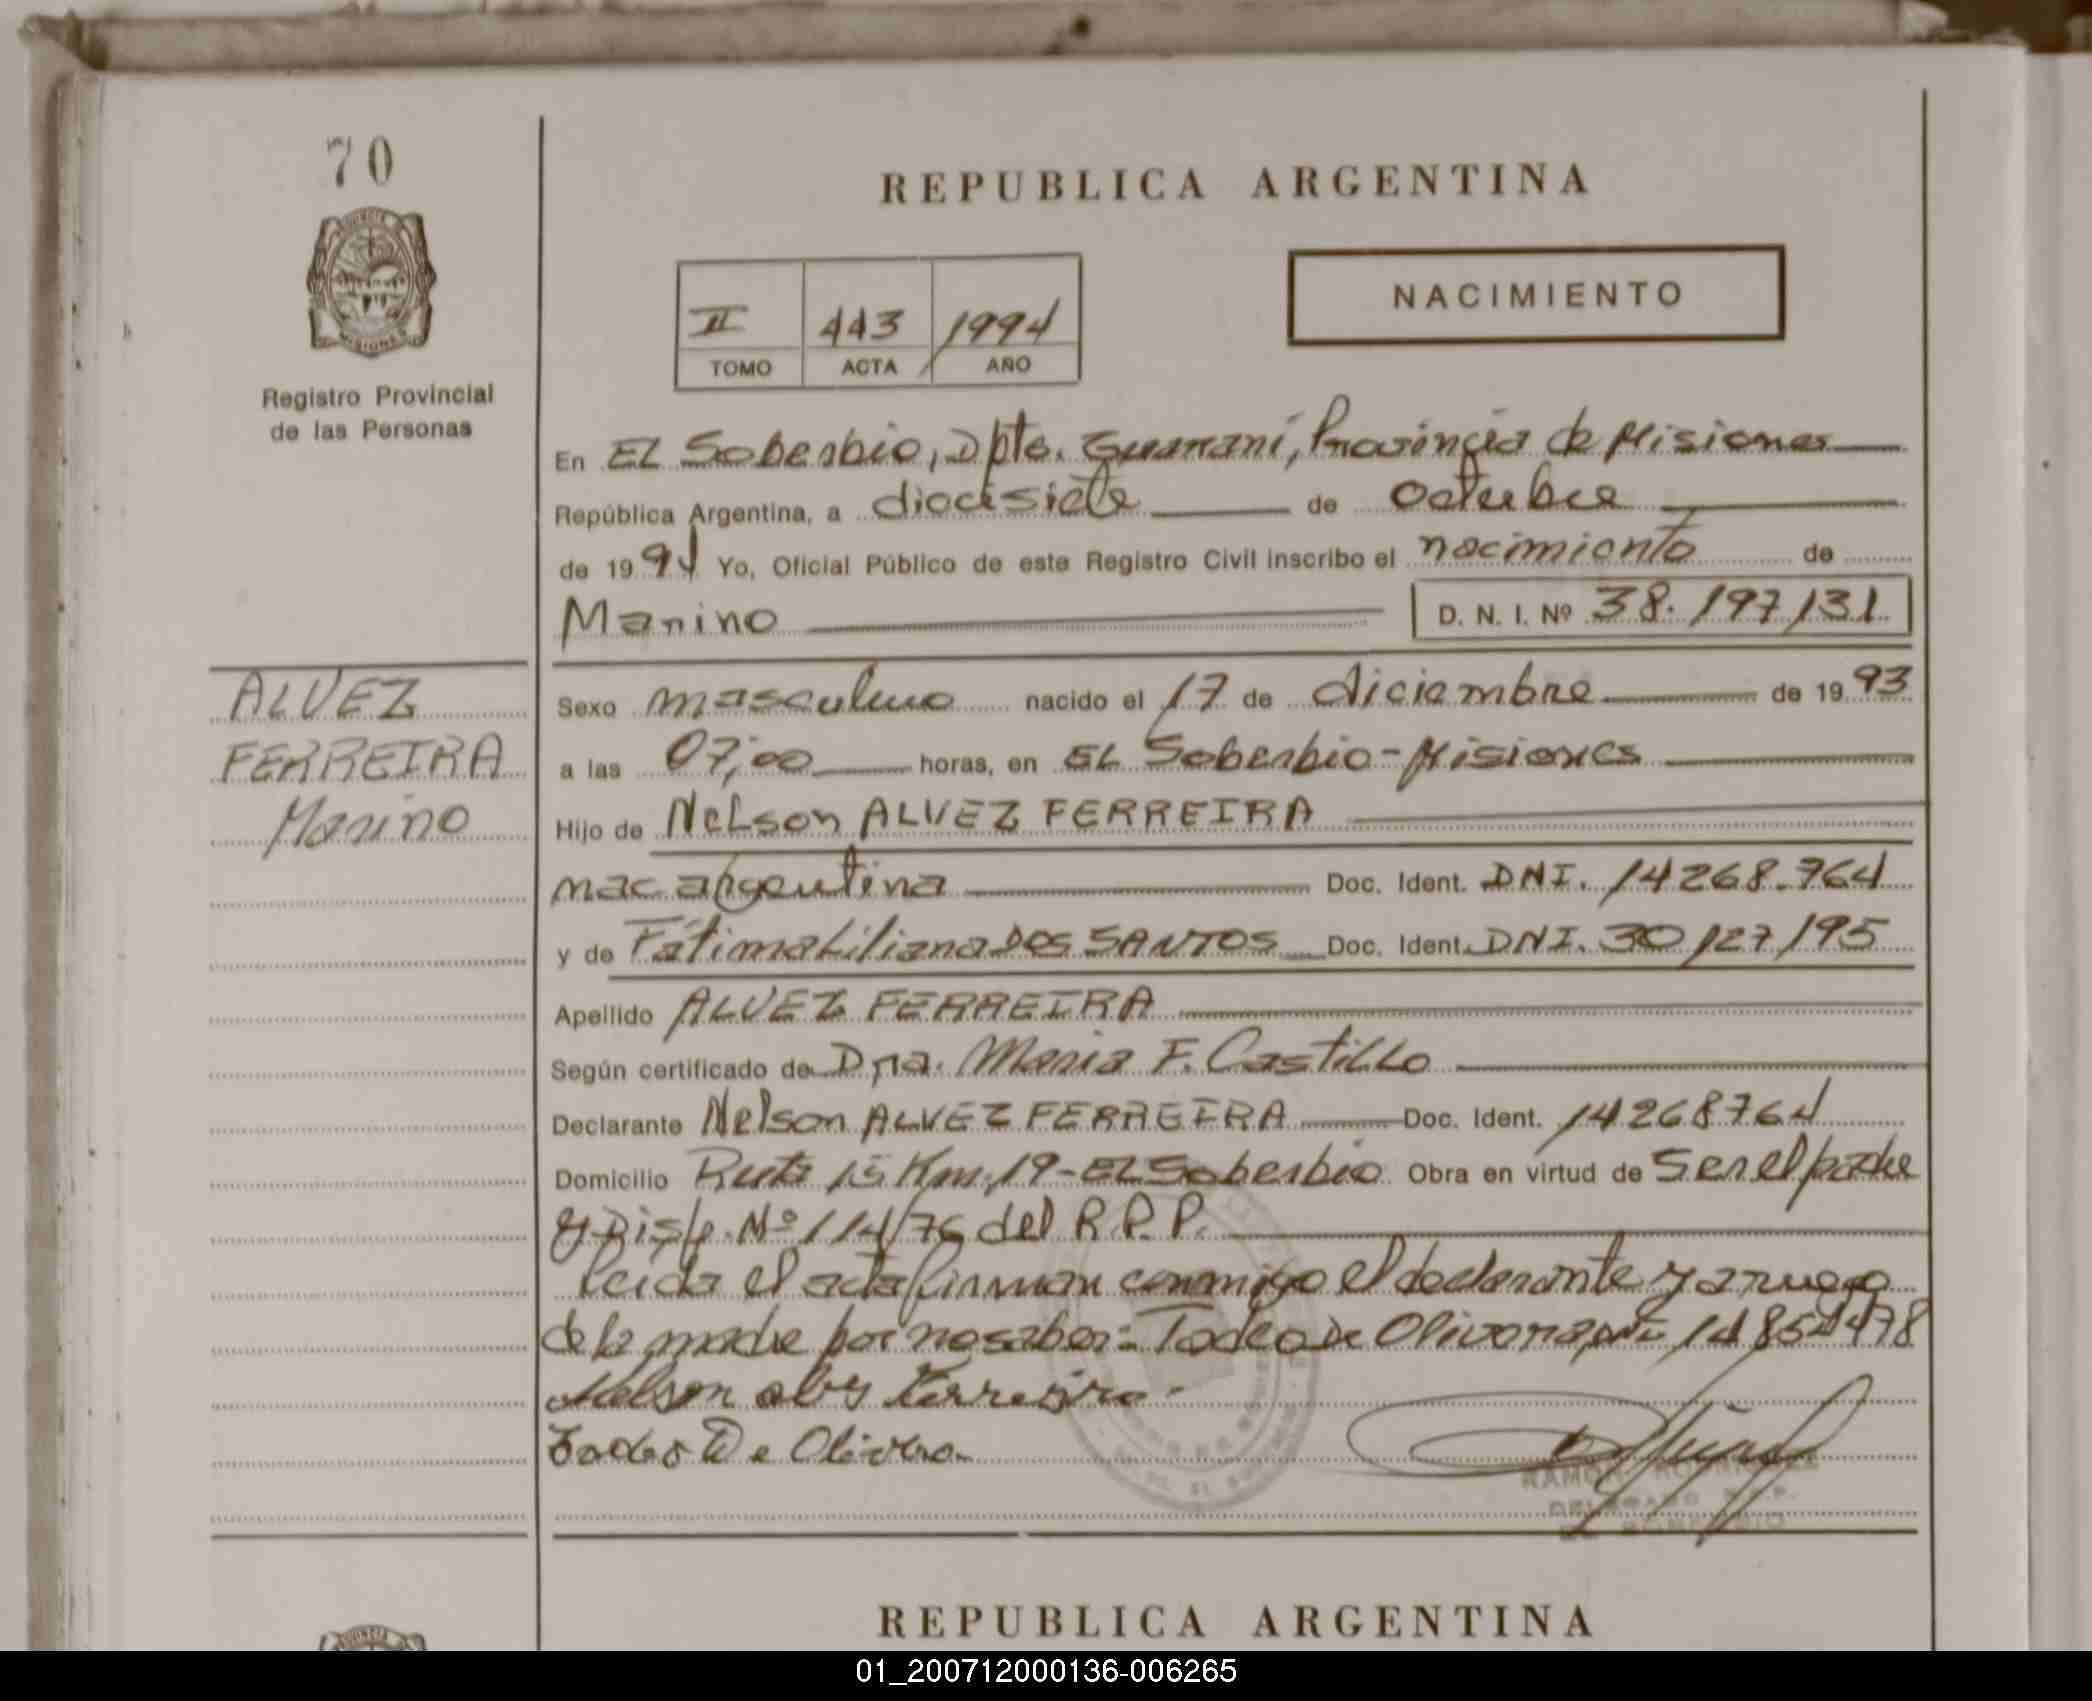 70
REPUBLICA ARGENTINA
NACIMIENTO
II 443 1994
TOMO ACTA AÑO
Registro Provincial
de las Personas
En EL Soberbio, Dpto. Guaraní, Provincia de Misiones
República Argentina, a diecisiete de octubre
de 1994 Yo, Oficial Público de este Registro Civil inscribo el nacimiento de
Marino D. N. I. Nº 38.197131
ALVEZ
FERREIRA
Marino
Sexo masculino nacido el 17 de diciembre de 1993
a las 07,00 horas, en EL Soberbio-Misiones
Hijo de Nelson ALVEZ FERREIRA
nac argentina Doc. Ident. DNI. 14268.764
y de Fátima Liliana DOS SANTOS Doc. Ident. DNI. 30127195
Apellido ALVEZ FERREIRA
Según certificado de Dra. Maria F. Castillo
Declarante Nelson ALVEZ FERREIRA Doc. Ident. 14268764
Domicilio Ruta 15 Km. 19-EL Soberbio Obra en virtud de Ser el padre
y Disp. Nº 114/76 del R.P.P.
Leida el acta firman conmigo el declarante y a ruego
de la madre por no saber: Tadeo De Olivera, DNI 14854478
Nelson alvs Ferreira
Tadeo De Olivera
RAMON RODRIGUEZ
DELEGADO R.P.P.
EL SOBERBIO
REPUBLICA ARGENTINA
01_200712000136-006265